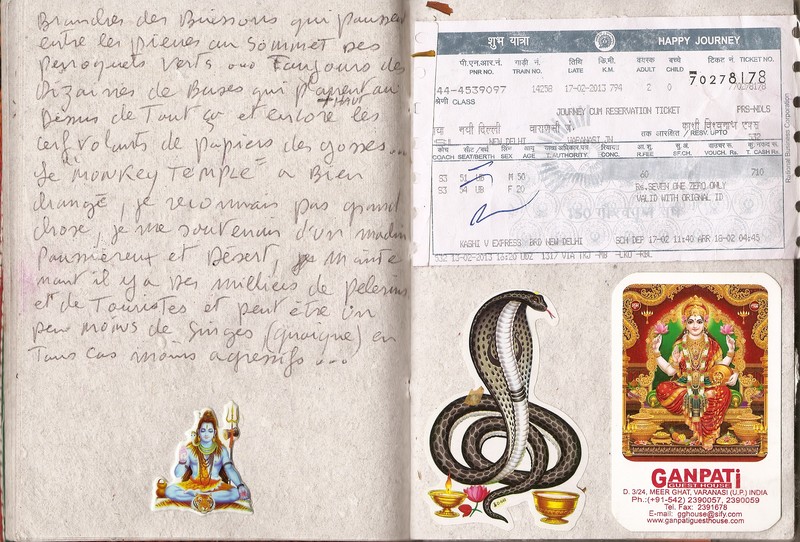 Branches des Buissons qui poussent
entre les pierres au sommet des
perroquets verts ... Toujours des
dizaines de Buses qui planent au
+ HAUT
Dessus de Tout ça et encore les
cerf volants de papiers des gosses ...
Le "MONKEY TEMPLE" a Bien
changé, je reconnais pas grand
chose, je me souvenais d'un
Poussiéreux et Désert, mainte
nant il y a des milliers de pelerins
et de Touristes et peut être un
peu moins de Singes (quoique) en
Tous cas moins agressifs ...
शुभ यात्रा HAPPY JOURNEY
पी.एन.आर.नं. गाड़ी नं. तिथि कि.मी. वयस्क बच्चे टिकट नं. TICKET NO.
PNR NO. TRAIN NO. DATE K.M. ADULT CHILD 70278178
44-4539097 14258 17-02-2013 794 2 0 770278178
श्रेणी CLASS
JOURNEY CUM RESERVATION TICKET PRS-NDLS
नयी दिल्ली वाराणसी जं. काशी विश्वनाथ एक्स
NEW DELHI VARANASI JN तक आरक्षित / RESV. UPTO
COACH SEAT/BERTH SEX AGE T.AUTHORITY CONC. R.FEE S.F.CH. VOUCHR. Rs. T. CASH Rs.
S3 51 UB M 50 60 710
S3 54 UB F 20 Rs.SEVEN ONE ZERO ONLY
VALID WITH ORIGNAL ID
KASHI V EXPRESS BRD NEW DELHI SCH DEP 17-02 11:40 ARR 18-02 04:45
13-02-2013 16:20 UDZ
National Business Corporation
GANPATi
GUEST HOUSE
D. 3/24, MEER GHAT, VARANASI (U.P.) INDIA
Ph.:(+91-542) 2390057, 2390059
Tel. Fax: 2391678
E-mail: gghouse@sify.com
www.ganpatiguesthouse.com